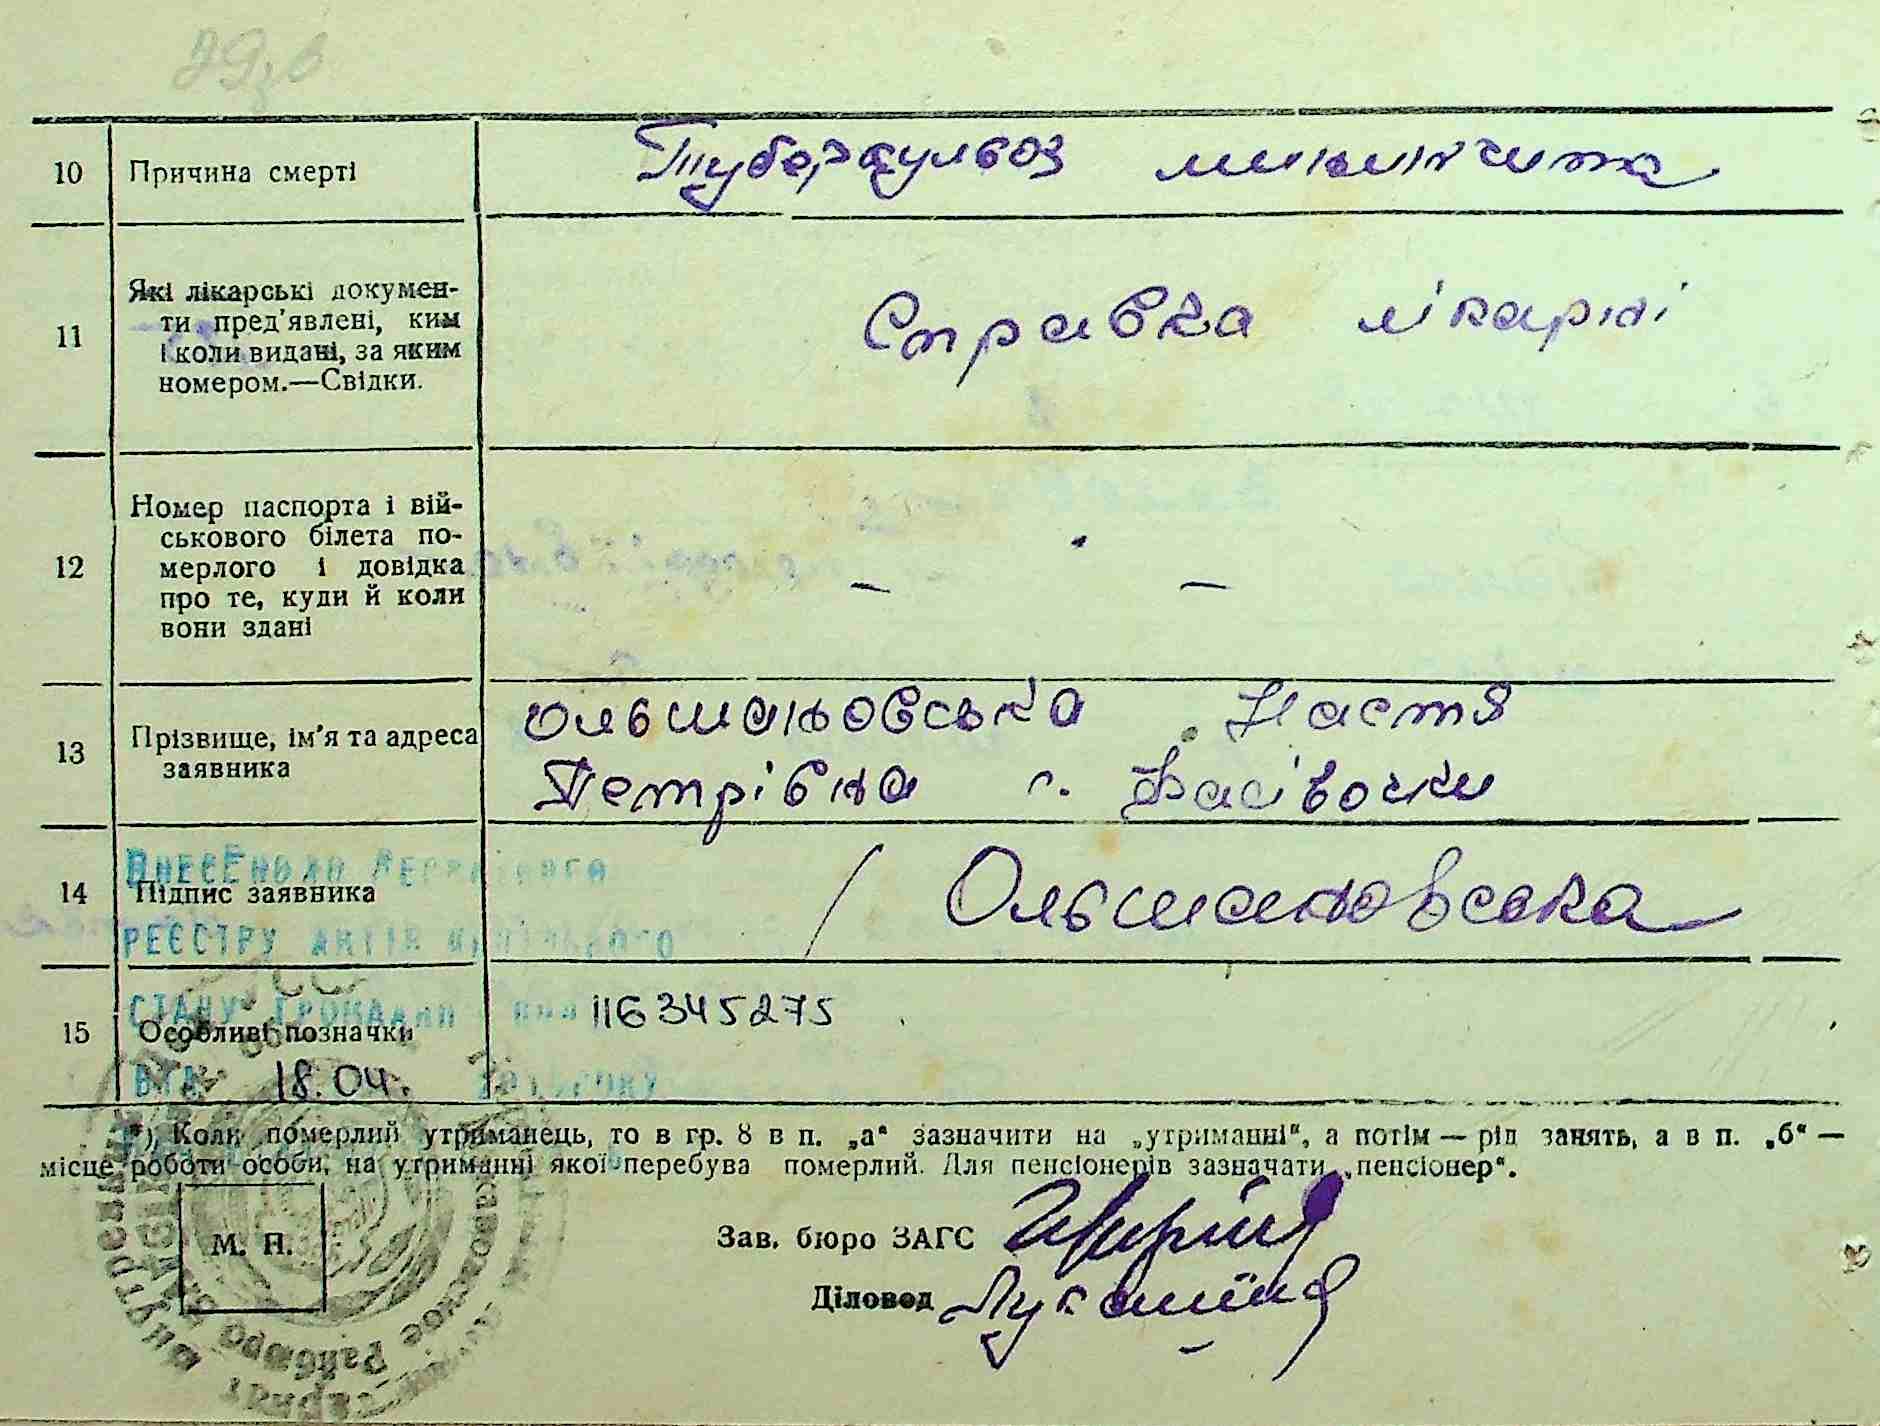 10 Причина смерті Туберкульоз
11 Які лікарські докумен-
ти пред'явлені, ким
і коли видані, за яким
номером.—Свідки.
Справка лікарні
12 Номер паспорта і вій-
ськового білета по-
мерлого і довідка
про те, куди й коли
вони здані
— —
13 Прізвище, ім'я та адреса
заявника
Ольшановська Настя
Петрівна с. Фасівочки
ВНЕСЕНО ДО ДЕРЖАВНОГО
14 Підпис заявника / Ольшановська
РЕЄСТРУ АКТІВ ЦИВІЛЬНОГО
СТАНУ ГРОМАДЯН 116345275
15 Особливі позначки
18.04. РОКУ
*) Коли померлий утриманець, то в гр. 8 в п. „а“ зазначити на „утриманні“, а потім — рід занять, а в п. „б“ —
місце роботи особи, на утриманні якої перебува померлий. Для пенсіонерів зазначати „пенсіонер“.
М. П.
Зав. бюро ЗАГС
Діловод